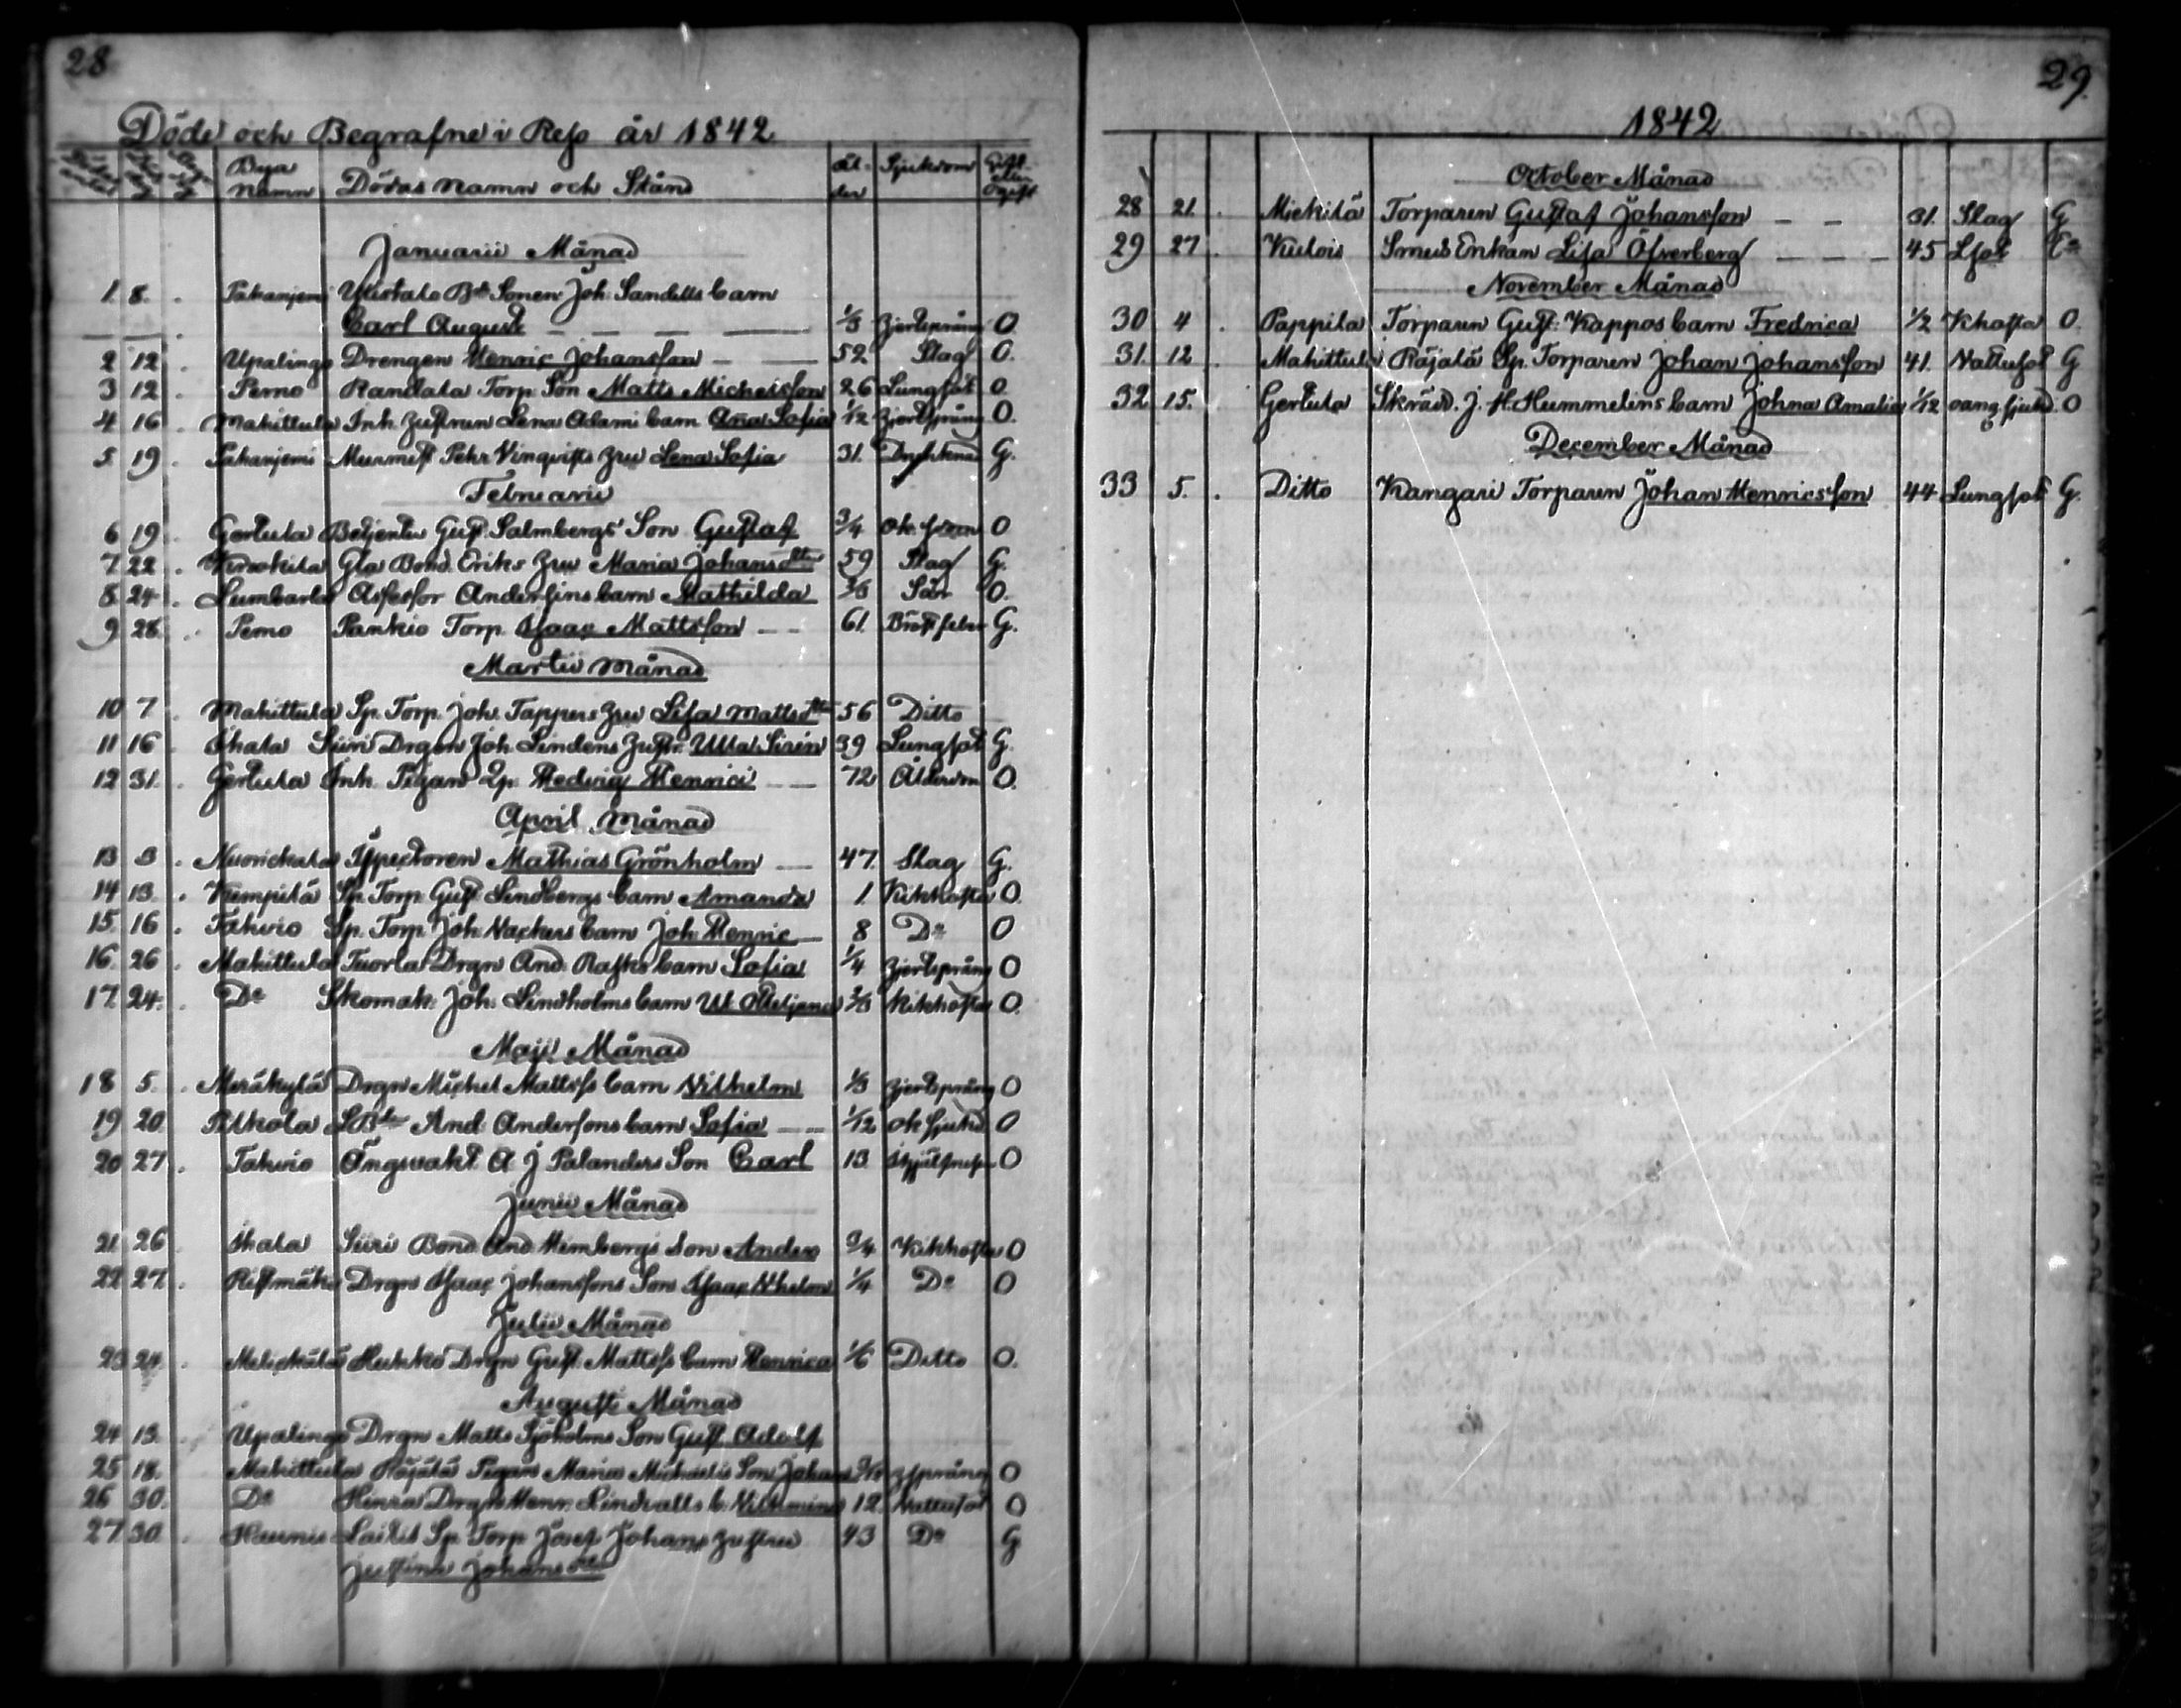 28
Döde och Begrafne i Reso år 1842
Bya namn Dödas namn och Stånd Ål-der Sjukdom Gift eller Ogift
Januarii Månad
1 8. Pakanjemi Ylistalo Bde Sonen Joh. Sandells barn
Carl August — — — 1/3 Hjertspräng O
2 12. Upalingo Drengen Henric Johansson — 52 Slag O.
3 12. Perno Randala Torp. Son Matts Michelsson 26 Lungsot O
4 16 Mahittula Inh. Hustrun Lena Adami barn Ana Sofia 1/2 Hjertspräng O.
5 19. Pakanjemi Murmest Pehr Vinqvists Hru Lena Sofia 31. G.
Februarii
6 19. Gertula Betjenten Gust. Salmbergs Son Gustaf 3/4 Ok. O
7 22. Gla Bond. Eriks Hru Maria Johansdtr 59 Slag G.
8 24. Lumbarla Assessor Anderfins barn Mathilda Sår O.
9 28. Perno Pankio Torp. Isaac Mattsson — 61. Bröstfeber G.
Martii Månad
10 7. Mahittula Sp. Torp. Joh. Tappers Hru Lisa Mattsdtr 56 Ditto
11 16 Ihala Siiri Drgn Joh. Lindens Hustr. Ulla Sirén 39 Lungsot G.
12 31. Gertula Inh. Pigan Hedvig Henrici — 72 Ålderdom O.
April Månad
13 3. Nuorickala Ispectoren Mathias Grönholm — 47. Slag G.
14 13. Kempilä Sp. Torp. Gust. Lindbergs barn Amanda 1. Kikhosta O.
15. 16. Tahvio Sp. Torp. Joh. Nackers barn Joh. Henric — 8 Do O
16. 26. Mahittula Tuorla Drgn And. Rasks barn Sofia 1/4 Hjertspräng O
17 24. Do Skomak. Joh. Lindholms barn 2/3 Kikhosta O.
Maji Månad
18 5. Meräkylä Drgn Michel Mattss barn Vilhelm 1/3 Hjertspräng O
19 20 Pitkola And. Andersons barn Sofia — 1/12 Ok Sjukd O
20 27. Tahvio Ängsvakt. A J Palanders Son Carl 13. O
Junii Månad
21 26 Ihala Siiri Bond And Himbergs Son Anders 3/4 Kikhosta O
22 27. Ristmäki Drgn Isaac Johanssons Son Isaac Vhelm 1/4 Do O
Julii Månad
23 24. Hukko Drgn Gust. Mattss barn Henrica 1/6 Ditto O.
Augusti Månad
24 13. Upalingo Drgn Matts Sjöholms Son Gust. Adolf
25 18. Mahittula Räjälä Pigan Maria Michaelis Son Johan Hspräng O
26 30. Do Drgn Henr. Lindvalls b. Vilhmina 12 Vattusot O
27 30. Haunis Laitis Sp. Torp Josef Johans Hustru 43 Do G
Justina Johansdtr
29.
1842
October Månad
28 21. Mickilä Torparen Gustaf Johansson — — 31. Slag G
29 27. Kulois Smeds Enkan Lisa Öfverberg — — — 45 Lsot En
November Månad
30 4. Pappila Torparen Gust. Kappos barn Fredrica 1/2 Khosta O.
31. 12. Mahittula Räjälä Sp. Torparen Johan Johansson 41. Vattusot G
32 15. Gertula Skrädd. J. H. Hummelins barn Johna Amalia 1/12 oang. sjukd. O
December Månad
33 5. Ditto Kangari Torparen Johan Henricsson 44 Lungsot G.